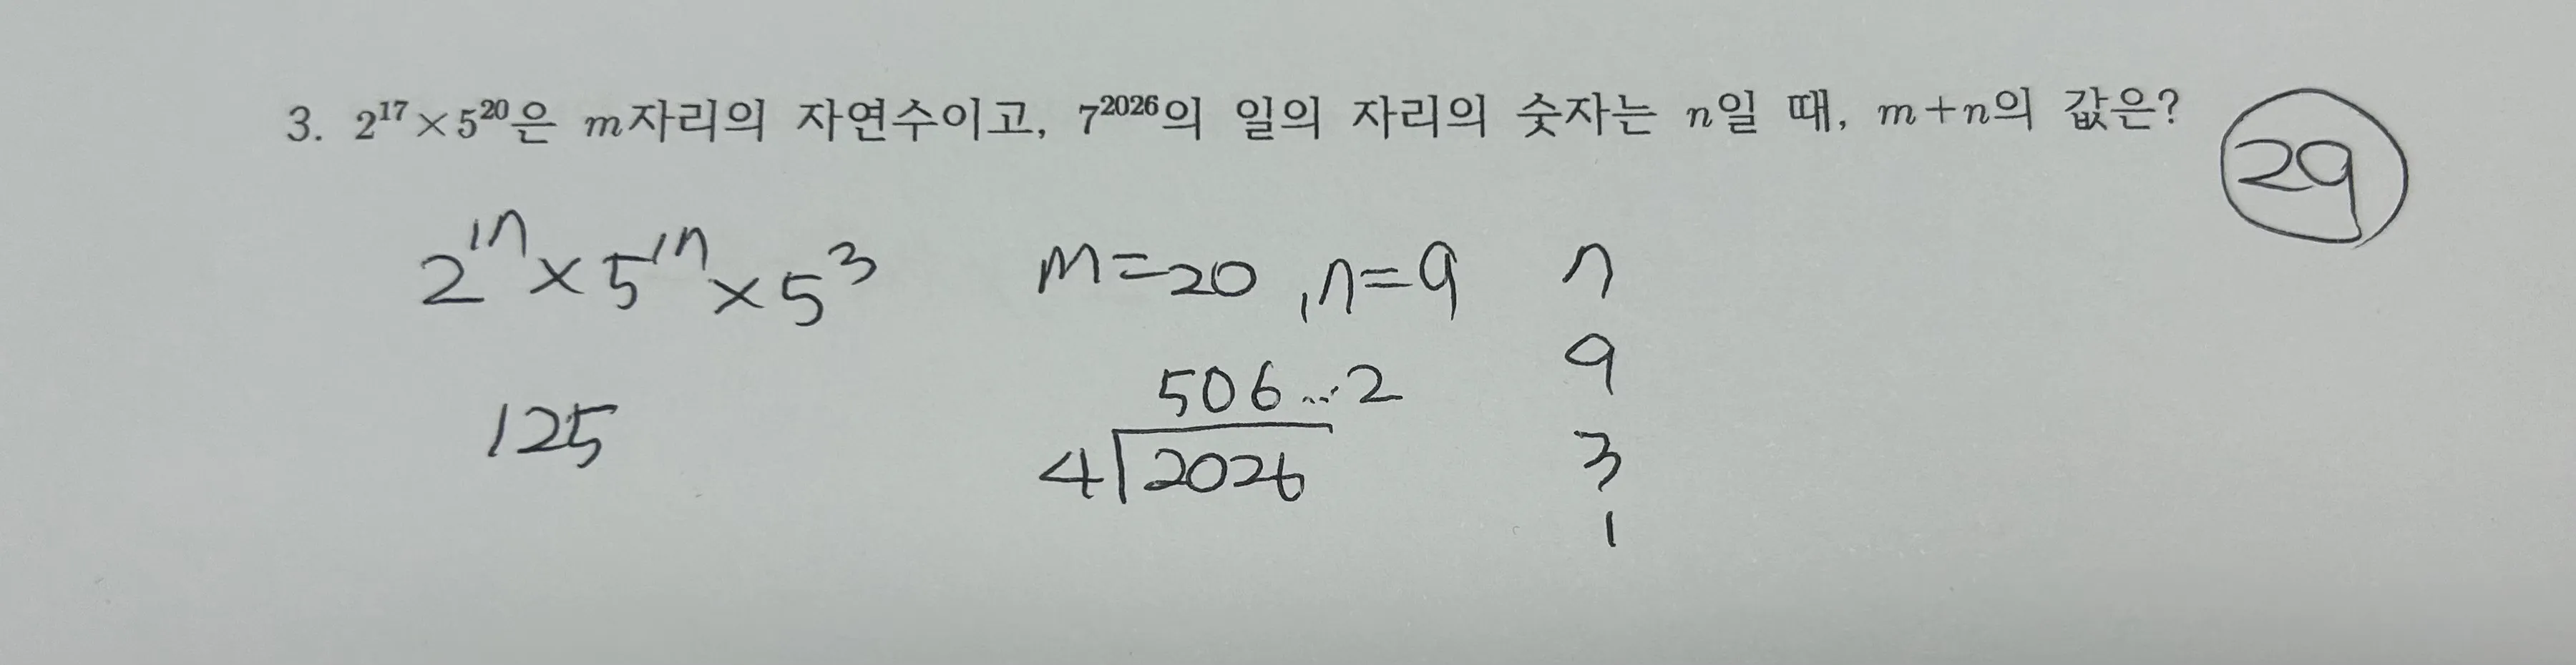 3. 2¹⁷×5²⁰은 m자리의 자연수이고, 7²⁰²⁶의 일의 자리의 숫자는 n일 때, m+n의 값은?
29
2¹⁷×5¹⁷×5³
125
m=20, n=9
506…2
4 2026
7
9
3
1